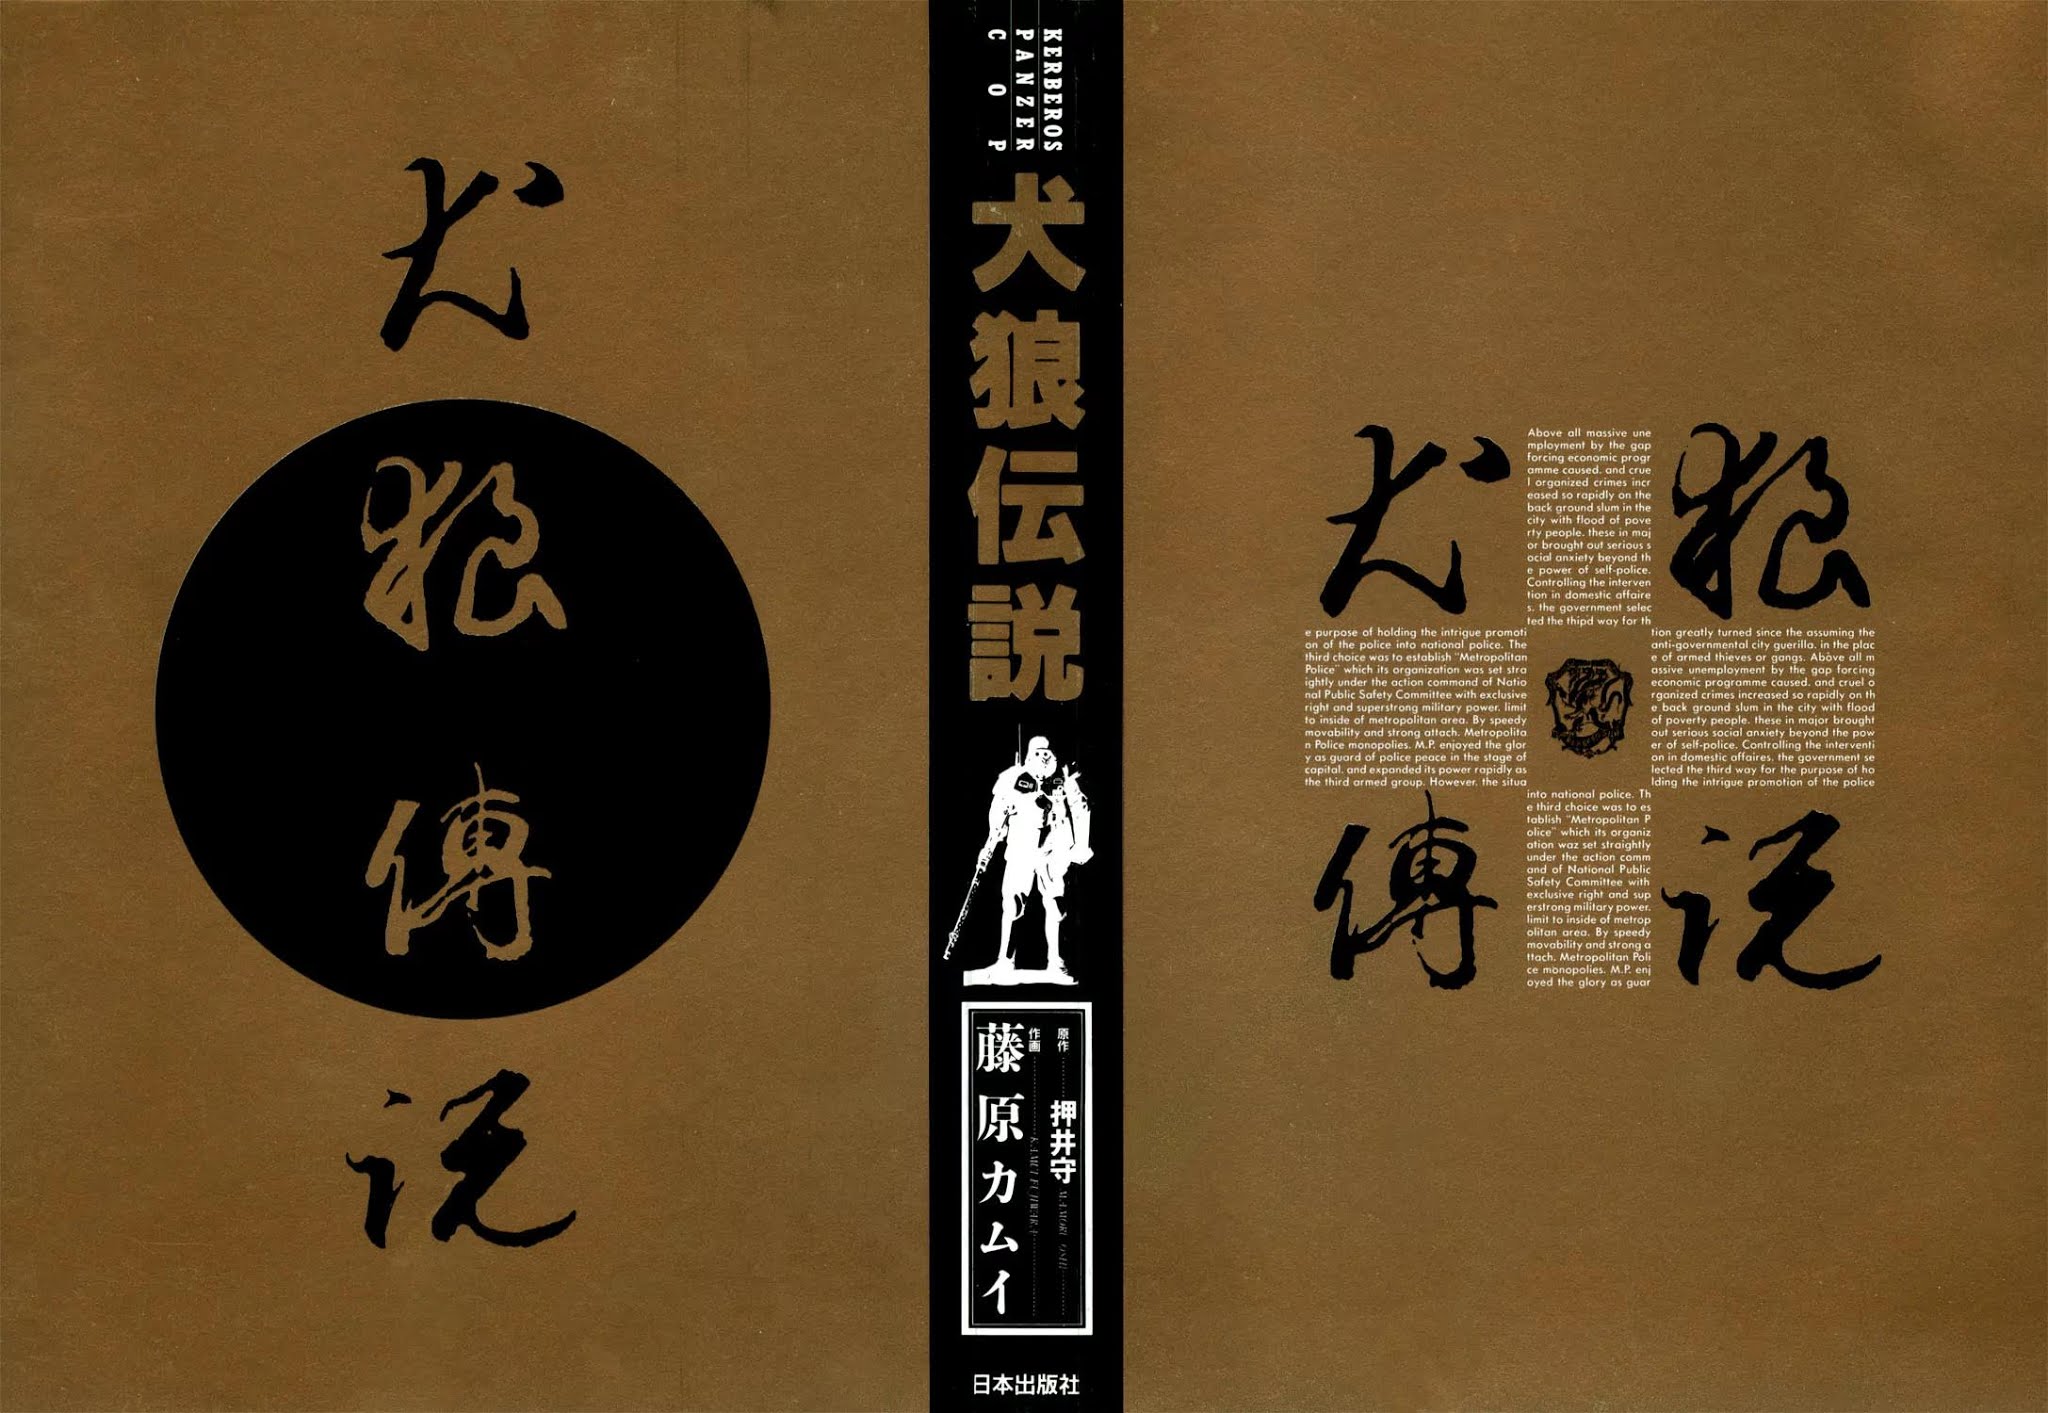 犬
狼
傳
説
KERBEROS
PANZER
COP
犬狼伝説
原作 押井守 MAMORU OSHII
作画 KAMUI FUJIWARA
藤原カムイ
日本出版社
犬 狼
Above all massive une
mployment by the gap
forcing economic progr
amme caused. and crue
l organized crimes incr
eased so rapidly on the
back ground slum in the
city with flood of pove
rty people. these in maj
or brought out serious s
ocial anxiety beyond th
e power of self-police.
Controlling the interven
tion in domestic affaire
s. the government selec
ted the thipd way for th
e purpose of holding the intrigue promoti
on of the police into national police. The
third choice was to establish "Metropolitan
Police" which its organization was set stra
ightly under the action command of Natio
nal Public Safety Committee with exclusive
right and superstrong military power. limit
to inside of metropolitan area. By speedy
movability and strong attach. Metropolita
n Police monopolies. M.P. enjoyed the glor
y as guard of police peace in the stage of
capital. and expanded its power rapidly as
the third armed group. However. the situa
tion greatly turned since the assuming the
anti-governmental city guerilla. in the plac
e of armed thieves or gangs. Above all m
assive unemployment by the gap forcing
economic programme caused. and cruel o
rganized crimes increased so rapidly on th
e back ground slum in the city with flood
of poverty people. these in major brought
out serious social anxiety beyond the pow
er of self-police. Controlling the interventi
on in domestic affaires. the government se
lected the third way for the purpose of ho
lding the intrigue promotion of the police
into national police. Th
e third choice was to es
tablish "Metropolitan P
olice" which its organiz
ation waz set straightly
under the action comm
and of National Public
Safety Committee with
exclusive right and sup
erstrong military power.
limit to inside of metrop
olitan area. By speedy
movability and strong a
ttach. Metropolitan Poli
ce monopolies. M.P. enj
oyed the glory as guar
傳 説